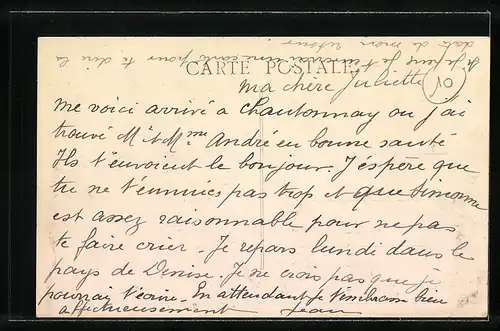 CARTE POSTALE
ma chère Juliette
me voici arrivé à Chantonnay ou j'ai
trouvé Mr et Mme André en bonne santé
Ils t'envoient le bonjour. J'éspère que
tu ne t'ennuies pas trop et que Simonne
est assez raisonnable pour ne pas
te faire crier - Je repars lundi dans le
pays de Denise. Je ne crois pas que je
pourrai t'écrire - En attendant je t'embrasse bien
affectueusement Jean
je t'enverrai une carte pour te dire la
date de mon retour